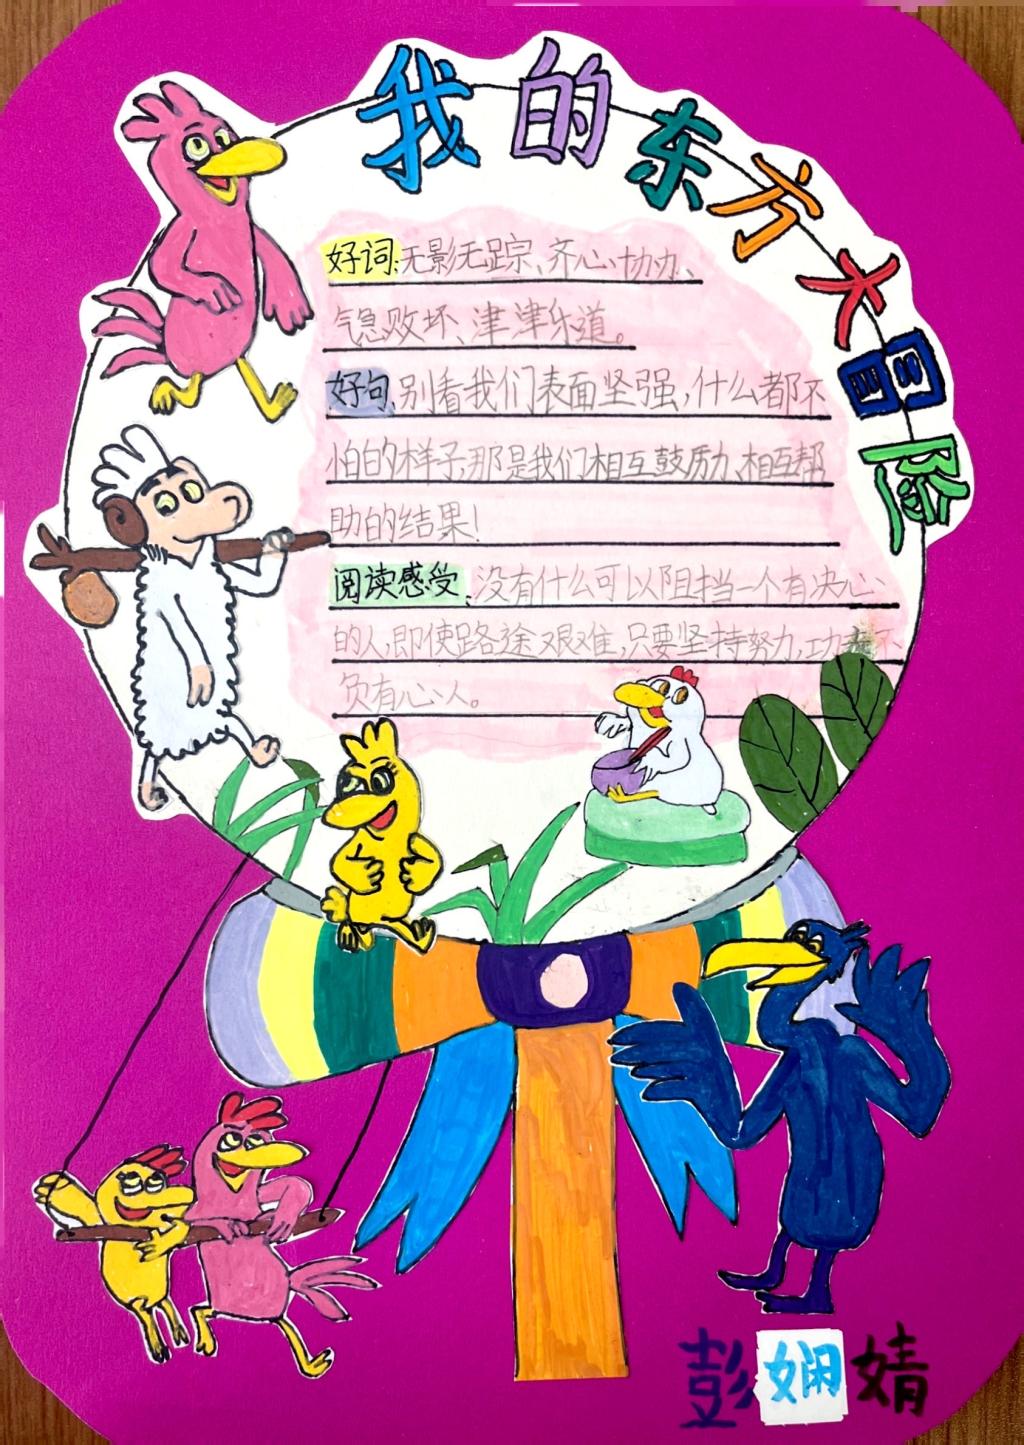 我的东方大冒险
好词:无影无踪、齐心协办、
气急败坏、津津乐道。
好句、别看我们表面坚强,什么都不
怕的样子,那是我们相互鼓励、相互帮
助的结果!
阅读感受:没有什么可以阻挡一个有决心
的人,即使路途艰难,只要坚持努力,功夫不
负有心人。
彭娴婧